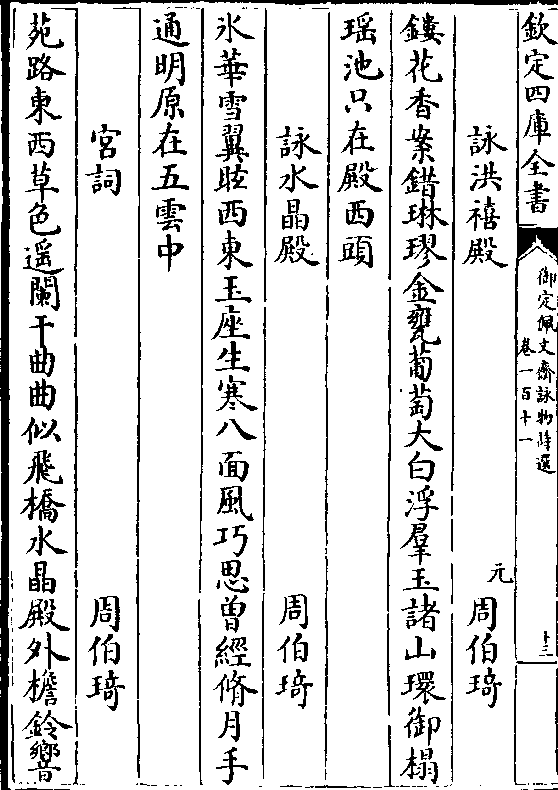 欽定四庫全書
御定佩文齋詠物詩選
卷一百十一
十三
詠洪禧殿
元
周伯琦
鏤花香案錯琳璆金甕葡萄大白浮羣玉諸山環御榻
瑶池只在殿西頭
詠水晶殿
周伯琦
氷華雪翼眩西東玉座生寒八面風巧思曾經脩月手
通明原在五雲中
宮詞
周伯琦
苑路東西草色遥闌干曲曲似飛橋水晶殿外檐鈴響